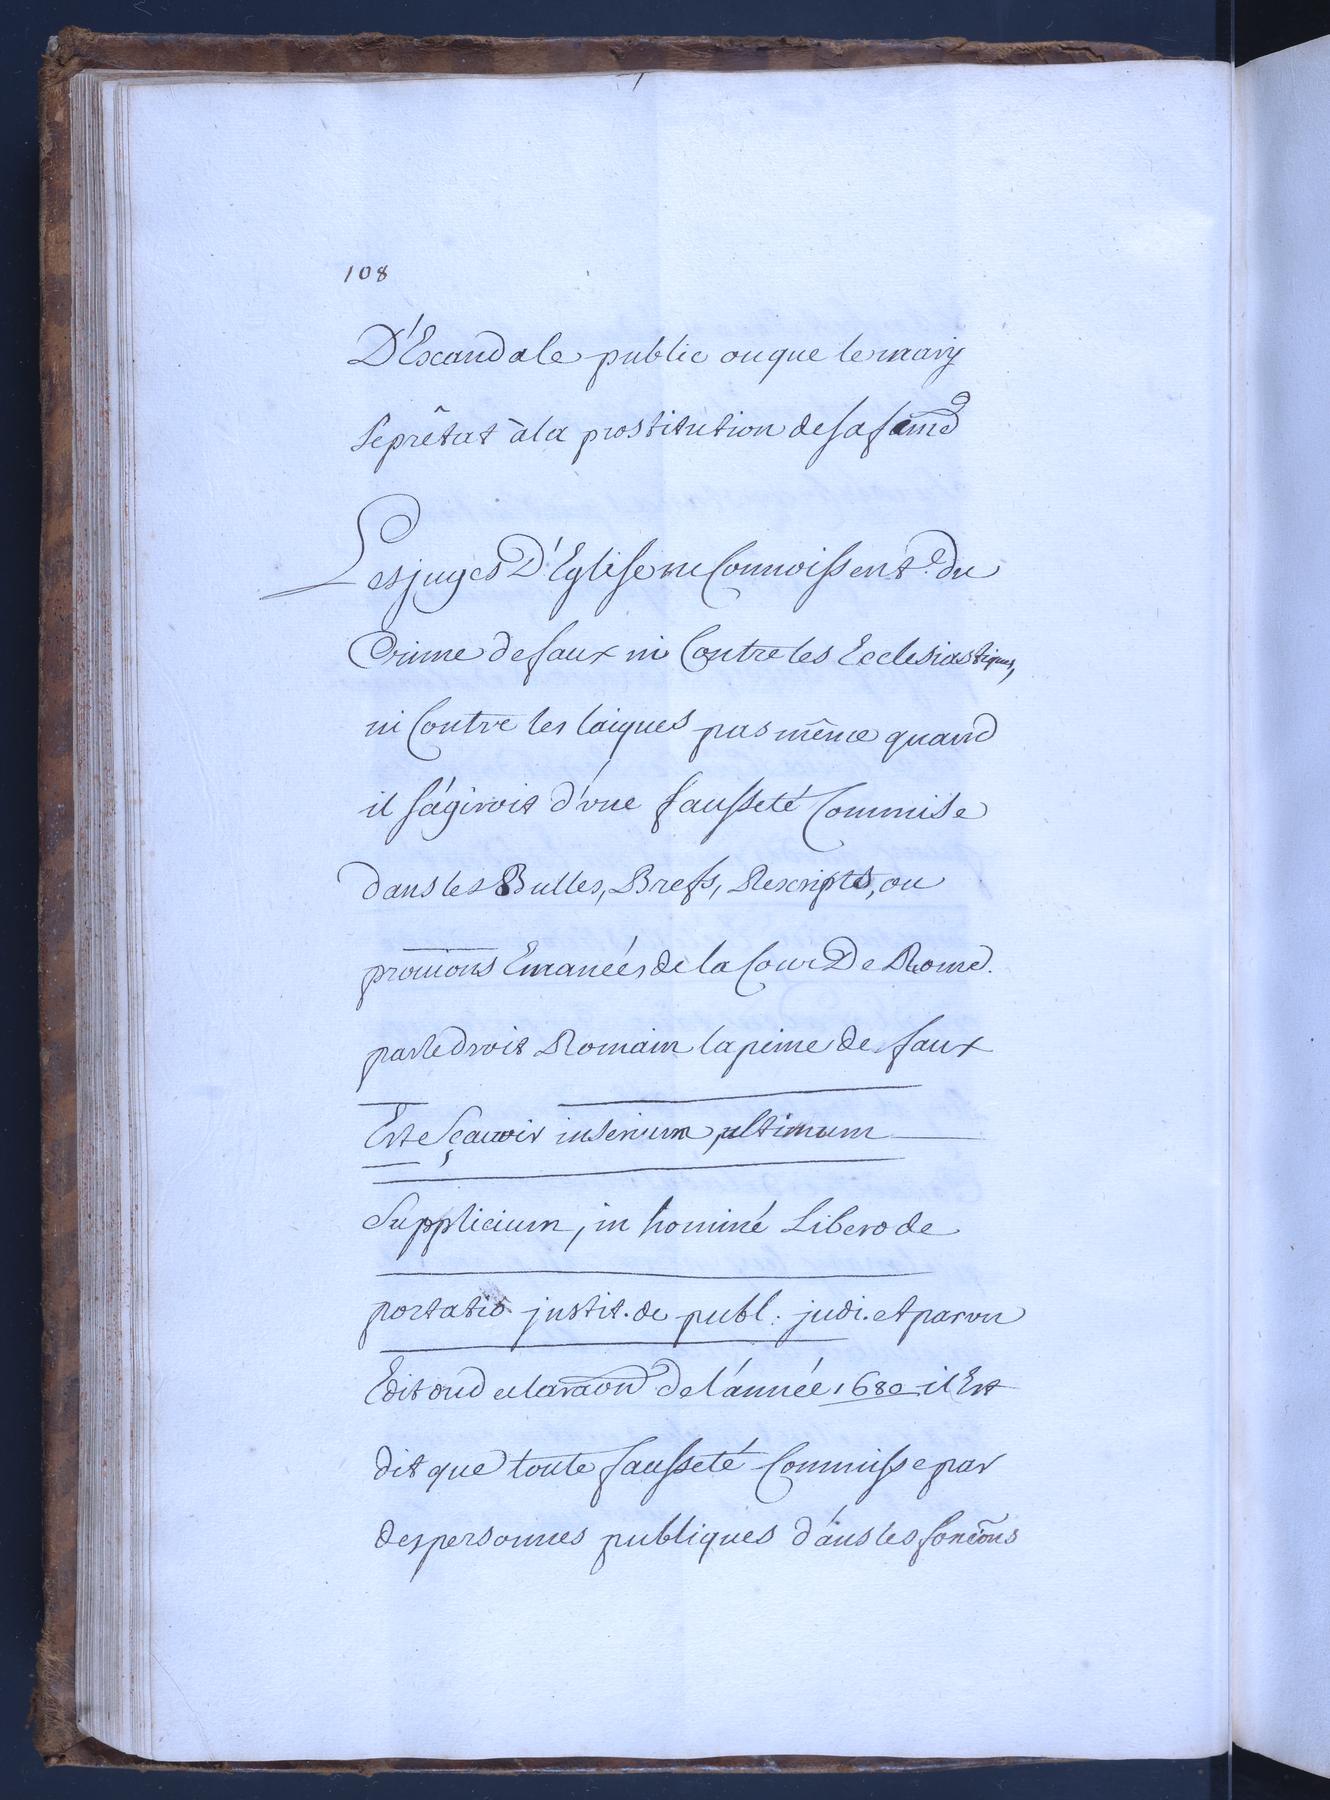 108
D'Escandale public ou que le mary
se prêtat à la prostitution de sa fāme
Les juges D'Eglise ne Connoissent du
Crime de faux ni Contre les Ecclesiastiques,
ni Contre les laiques pas même quand
il s'ágiroit d'vne fausseté Commise
dans les Bulles, Brefs, Rescripts, ou
proūions Emaneés de la Cour De Rome.
par le droit Romain la peine de faux
Est e Sçauoir in servum ultimum
Supplicium, in hominé Libero de
portatio justit. de publ. judi. et par vn
Edit ou declaraōn de l'année 1680 il Est
dit que toute fausseté Commisse par
des personnes publiques dans les foncōns